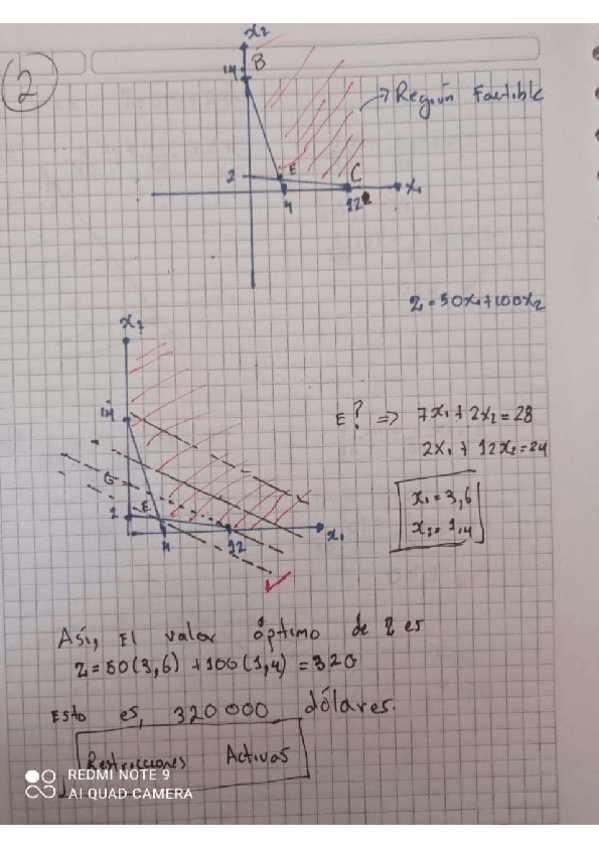 2
x2
14 B
→ Región Factible
2 E C x1
4 12
Z = 50x1+100x2
x2
14
E? => 7x1 + 2x2 = 28
2x1 + 12x2 = 24
G
x1 = 3,6
x2 = 1,4
2 E
4 12 x1
Así, El valor óptimo de Z es
Z = 50(3,6) + 100(1,4) = 320
Esto es, 320 000 dólares.
Restricciones Activas
REDMI NOTE 9
AI QUAD CAMERA